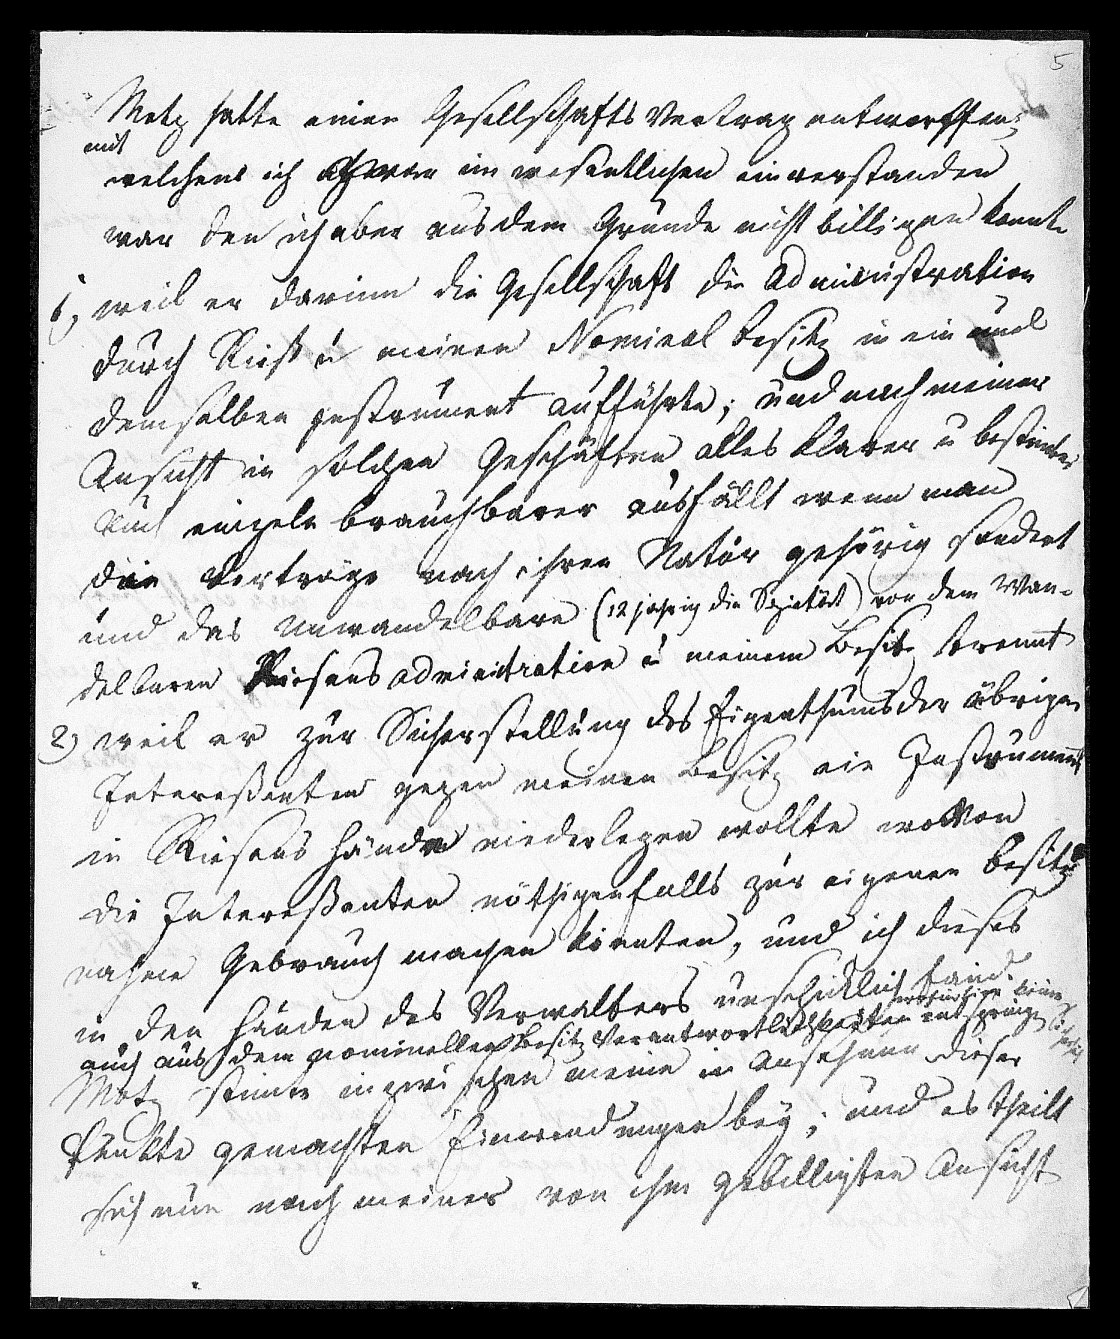 5
Motz hatte einen Gesellschafts Vertrag entworffen,
mit
welchem ich zwar im wesentlichen einverstanden
war den ich aber aus dem Grunde nicht billigen konnte
1, weil er darinn die Gesellschaft die Administration
durch Rieß u meinen Nominal besitz in ein und
demselben Instrument aufführte; und nach meiner
Ansicht in solchen Geschäften alles klarer u bestimter
auch einzeln brauchbarer ausfällt wenn man
die Verträge nach ihrer Natur gehörig sondert
und das unwandelbare (12 jährig die Sozietät) von dem Wan-
delbaren Riesens administration u meinem Besitz trennt
2, weil er zur Sicherstellung des Eigenthums der übrigen
Intereßenten gegen meinen Besitz ein Instrument
in Riesens Hände niederlegen wollte wovon
die Intereßenten nöthigenfalls zur eigenen besitz
nahme Gebrauch machen könnten, und ich dieses
in den Händen des Verwalters unschicklich fand.
auch aus dem nominellen Besitz Verantwortlichkeiten entspringen
Motz stimte inzwischen meine in Ansehung dieser
Punkte gemachten Einwendungen bey; und es theilt
sich nun nach meiner von ihm gebilligten Ansicht